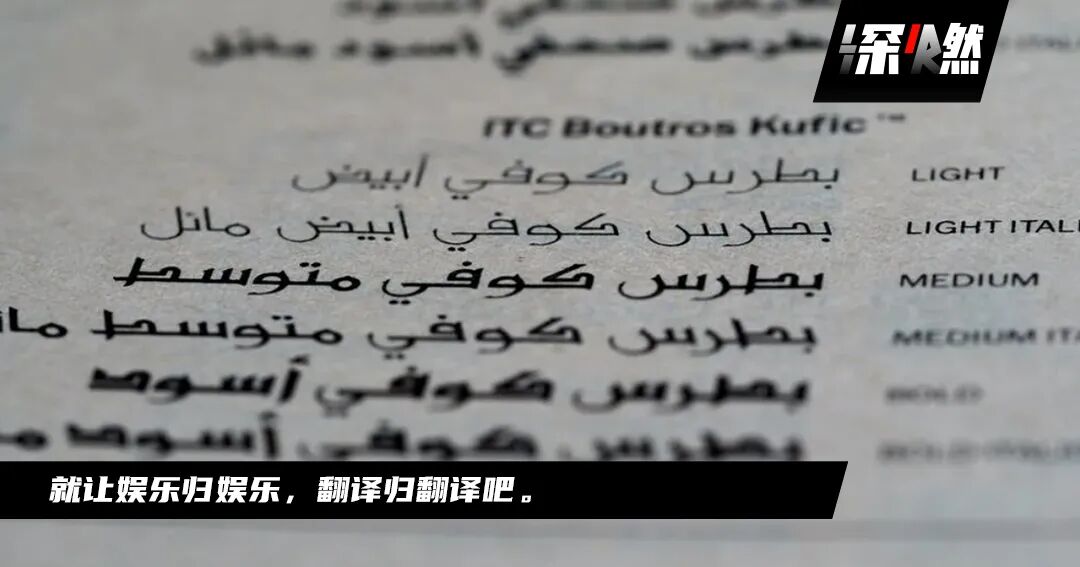 深燃
بطرس صحفي أسود مائل
ITC Boutros Kufic™
بطرس كوفي أبيض LIGHT
بطرس كوفي أبيض مائل LIGHT ITALI
بطرس كوفي متوسط MEDIUM
بطرس كوفي متوسط مائ MEDIUM ITA
بطرس كوفي أسود BOLD
بطرس كوفي أسود م BOLD ITALIC
就让娱乐归娱乐，翻译归翻译吧。